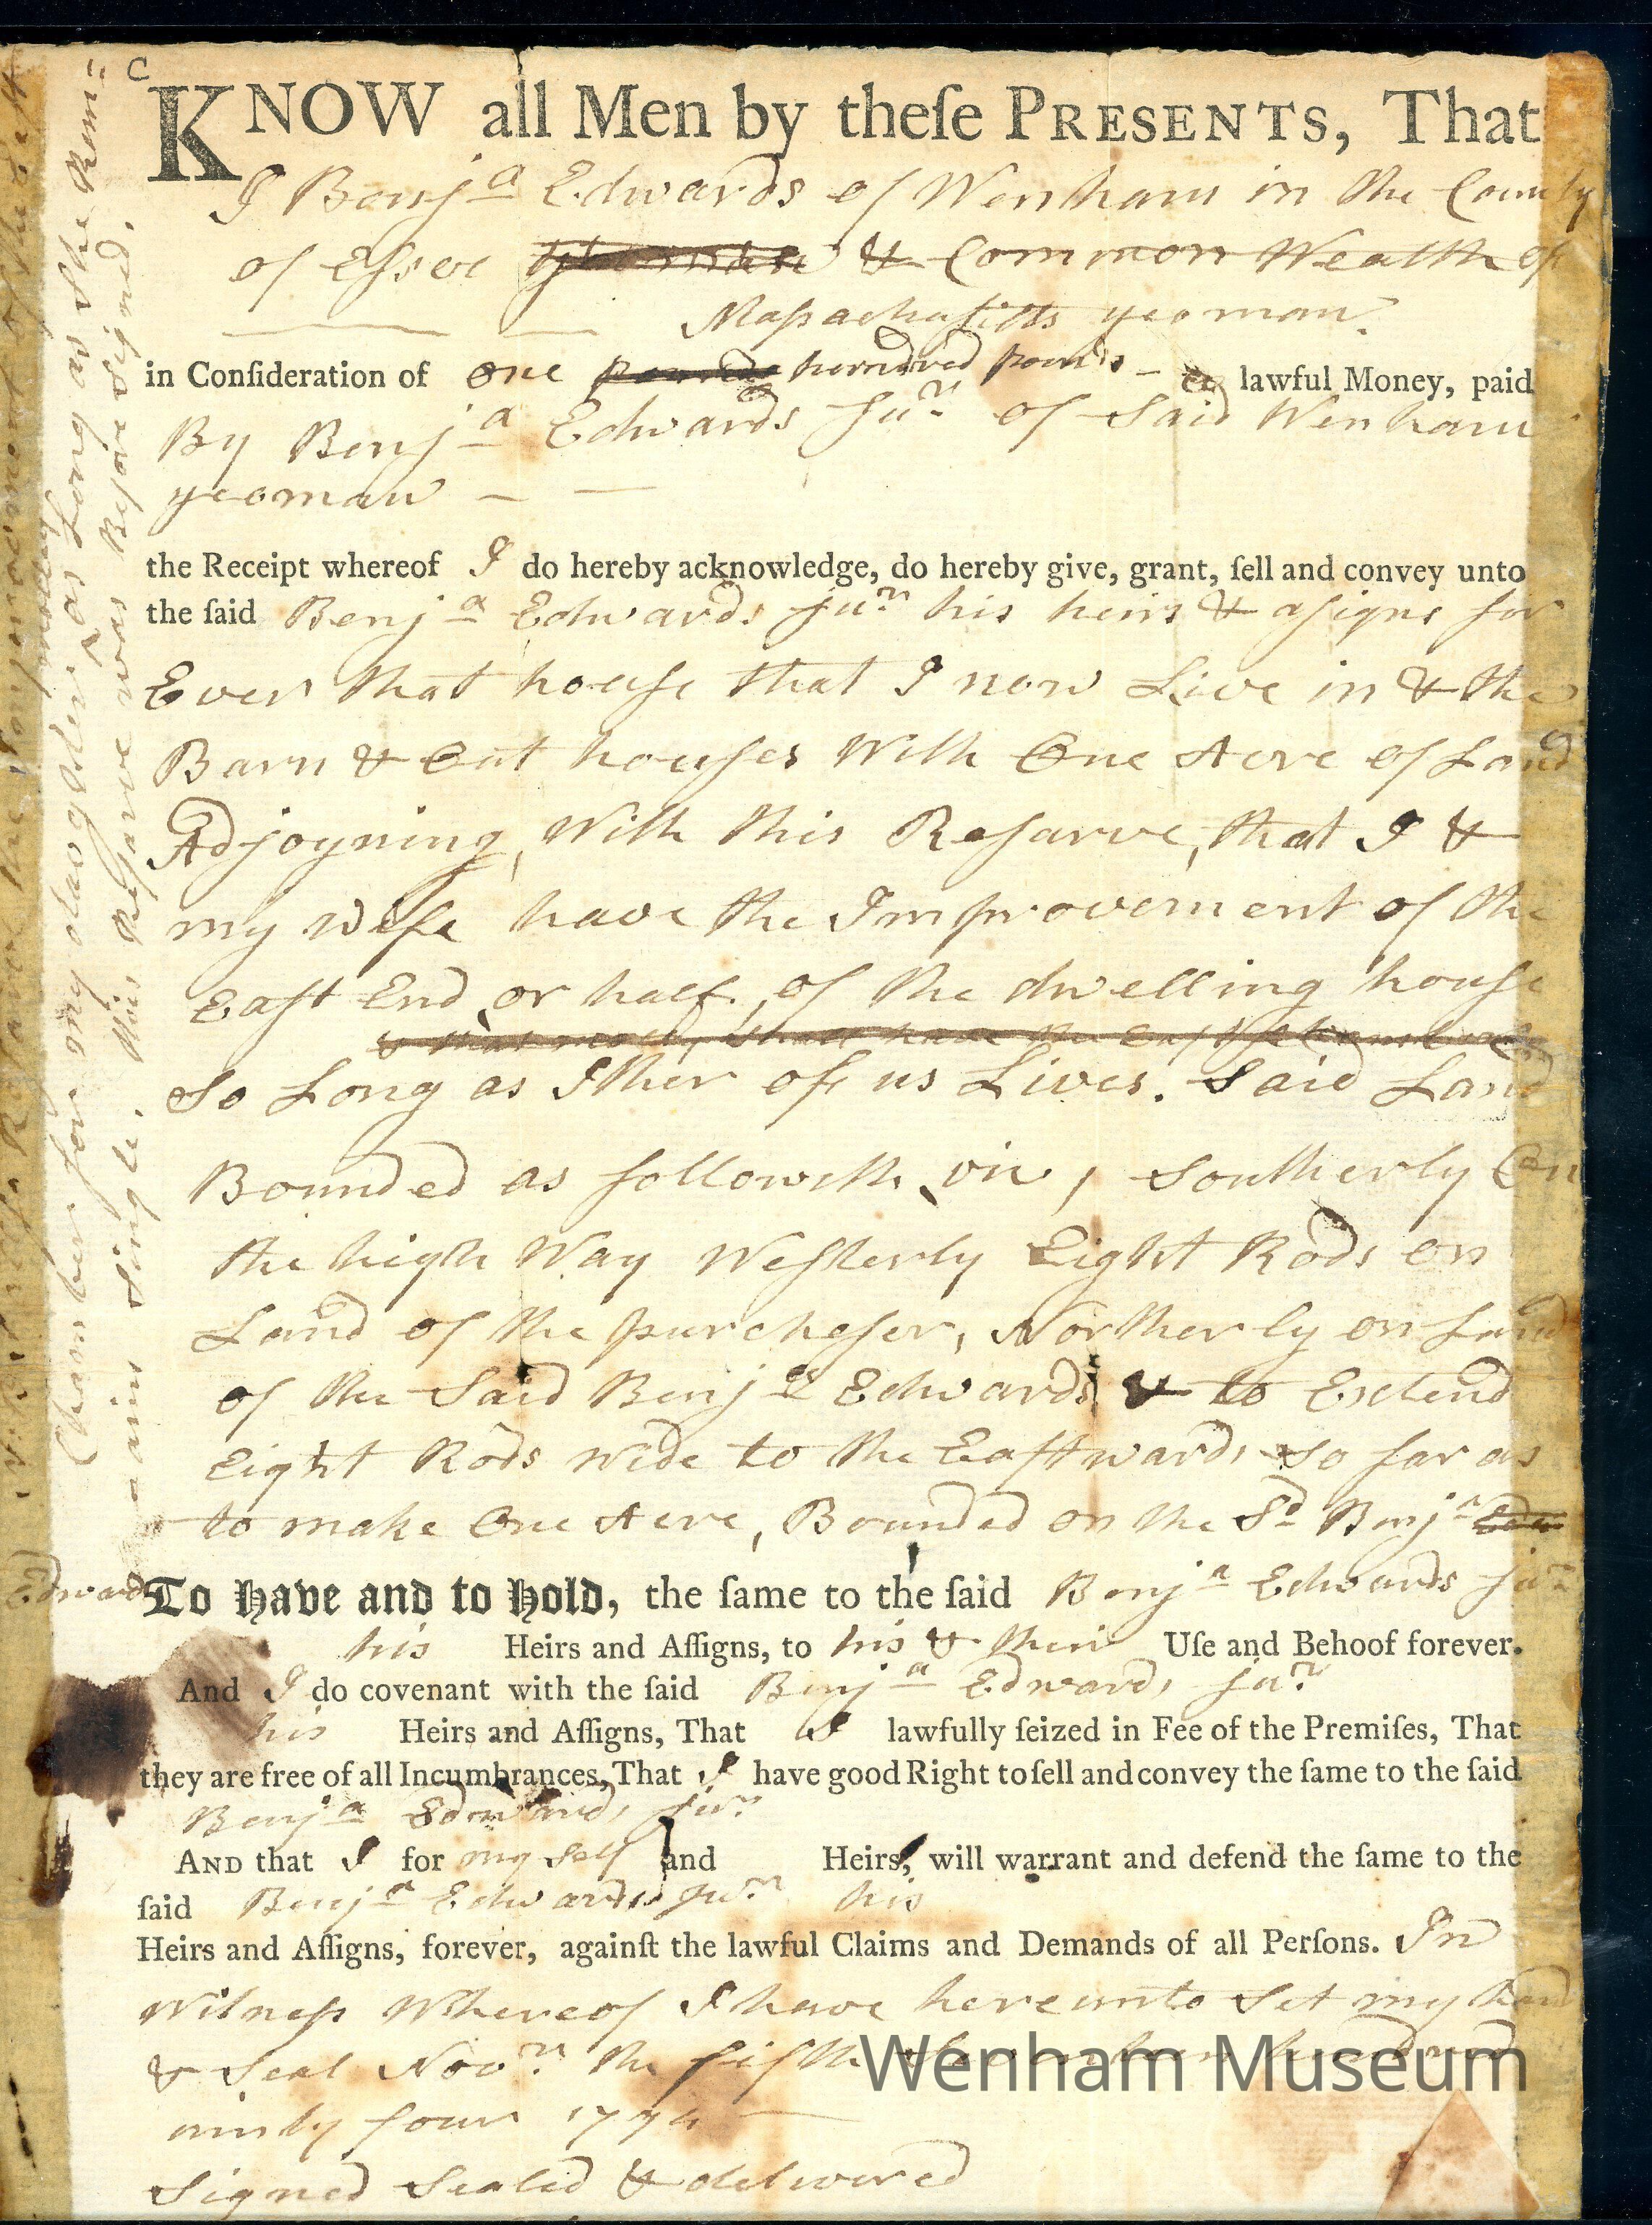 C
KNOW all Men by theſe PRESENTS, That
I Benja Edwards of Wenham in the County
of Essex & Common Wealth of
Maſsachuſitts yeoman
in Conſideration of One hundred pounds lawful Money, paid
By Benja Edwards Junr of Said Wenham
yeoman
the Receipt whereof I do hereby acknowledge, do hereby give, grant, ſell and convey unto
the ſaid Benja Edwards junr his heirs & aſigns for
Ever that houſe that I now Live in & the
Barn & Out houſes With One Acre of Land
Adjoyning, With this Reſarve, that I &
my Wife have the Improvement of the
Eaſt End, or half, of the dwelling houſe
So Long as Ither of us Lives. Said Land
Bounded as followeth, viz, Southerly On
the high Way Weſterly Eight Rods on
Land of the purcheſer, Northerly on Land
of the Said Benja Edwards & to Extend
Eight Rods wide to the Eaſtward, so far as
to make One Acre, Bounded on the Sd Benja
Edwards
To Have and to Hold, the ſame to the ſaid Benja Edwards Junr
his Heirs and Aſſigns, to his & their Uſe and Behoof forever.
And I do covenant with the ſaid Benja Edwards Junr
his Heirs and Aſſigns, That I lawfully ſeized in Fee of the Premiſes, That
they are free of all Incumbrances, That I have good Right to ſell and convey the ſame to the ſaid
Benja Edwards Junr
AND that I for my Self and Heirs, will warrant and defend the ſame to the
ſaid Benja Edwards Junr his
Heirs and Aſſigns, forever, againſt the lawful Claims and Demands of all Perſons. In
Witneſs Whereof I have hereunto Set my hand
& Seal Novr the fifth hundred
ninty four 1794
Signed Sealed & delivered
Chamber for my dawghter as Long as She Rem=
ains Single, this Reſarve was Before signed.
Wenham Museum